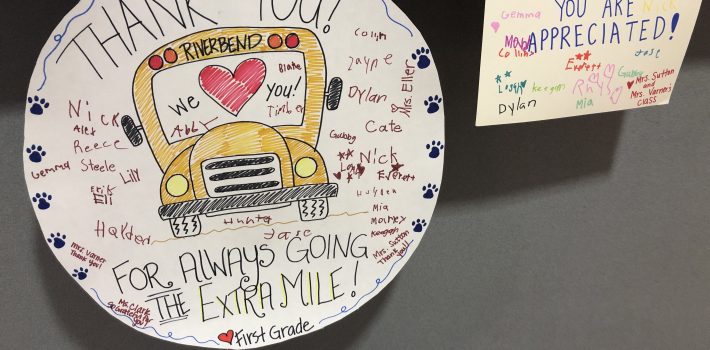 THANK YOU!
RIVERBEND
We
You!
Blake
Timber
Abby
Collin
Jayne
Dylan
Mrs. Eller
Cate
Gabby
Nick
Everett
Hayden
Mia
Marley
Mrs. Sutton
Thank you!
Nick
Alex
Reece
Gemma
Steele
Lily
Eric
Eli
Haldon
Mrs. Varner
Thank You!
Hunter
Jase
FOR ALWAYS GOING
THE EXTRA MILE!
Ms. Clark
First Grade
YOU ARE
APPRECIATED!
Gemma
Nick
Collin
Jase
Everett
Gabby
keegan
Rhys
Dylan
Mia
Mrs. Sutton
and
Mrs. Varner's
class